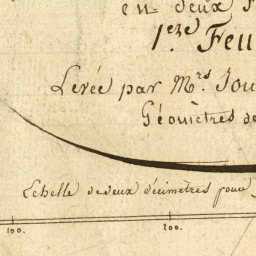 en deux F
1.eze Feu
Levée par Mrs Jou
Géomètres de
Echelle de deux décimetres pour
100. 200.